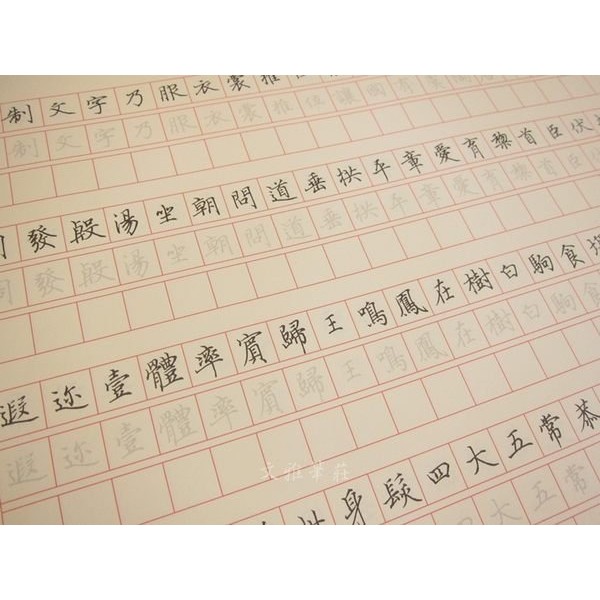 制文字乃服衣裳推
制文字乃服衣裳推位讓國有
發殷湯坐朝問道垂拱平章愛育黎首臣伏
周發殷湯坐朝問道垂拱平章愛育黎首臣
遐迩壹體率賓歸王鳴鳳在樹白駒食場
遐迩壹體率賓歸王鳴鳳在樹白駒食
此身髮四大五常恭
四大五常
文雅筆莊